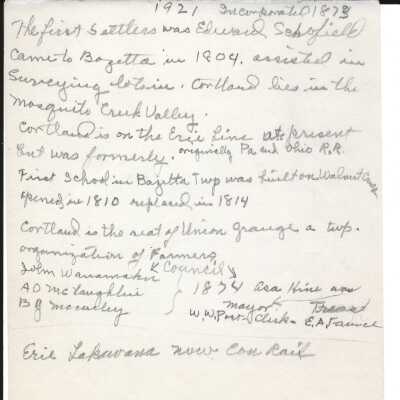 1921 Incorporated 1873
The first Settlers was Edward Schofield
Came to Bazetta in 1804. assisted in
Surveying lotsin. Cortland lies in the
Mosquito Creek Valley.
Cortland is on the Erie Line at present
but was formerly. originally Pa and Ohio R.R.
First School in Bazetta Twp was built on Walnut Creek
opened in 1810 replaced in 1814
Cortland is the seat of Union Grange a twp.
organization of Farmers
John Wanamaker Council
A D McLaughlin 1874 Asa Hine
B J mayor
W.W. Post - Clerk - E.A. Faunce
Erie Lakavana now Con Rail